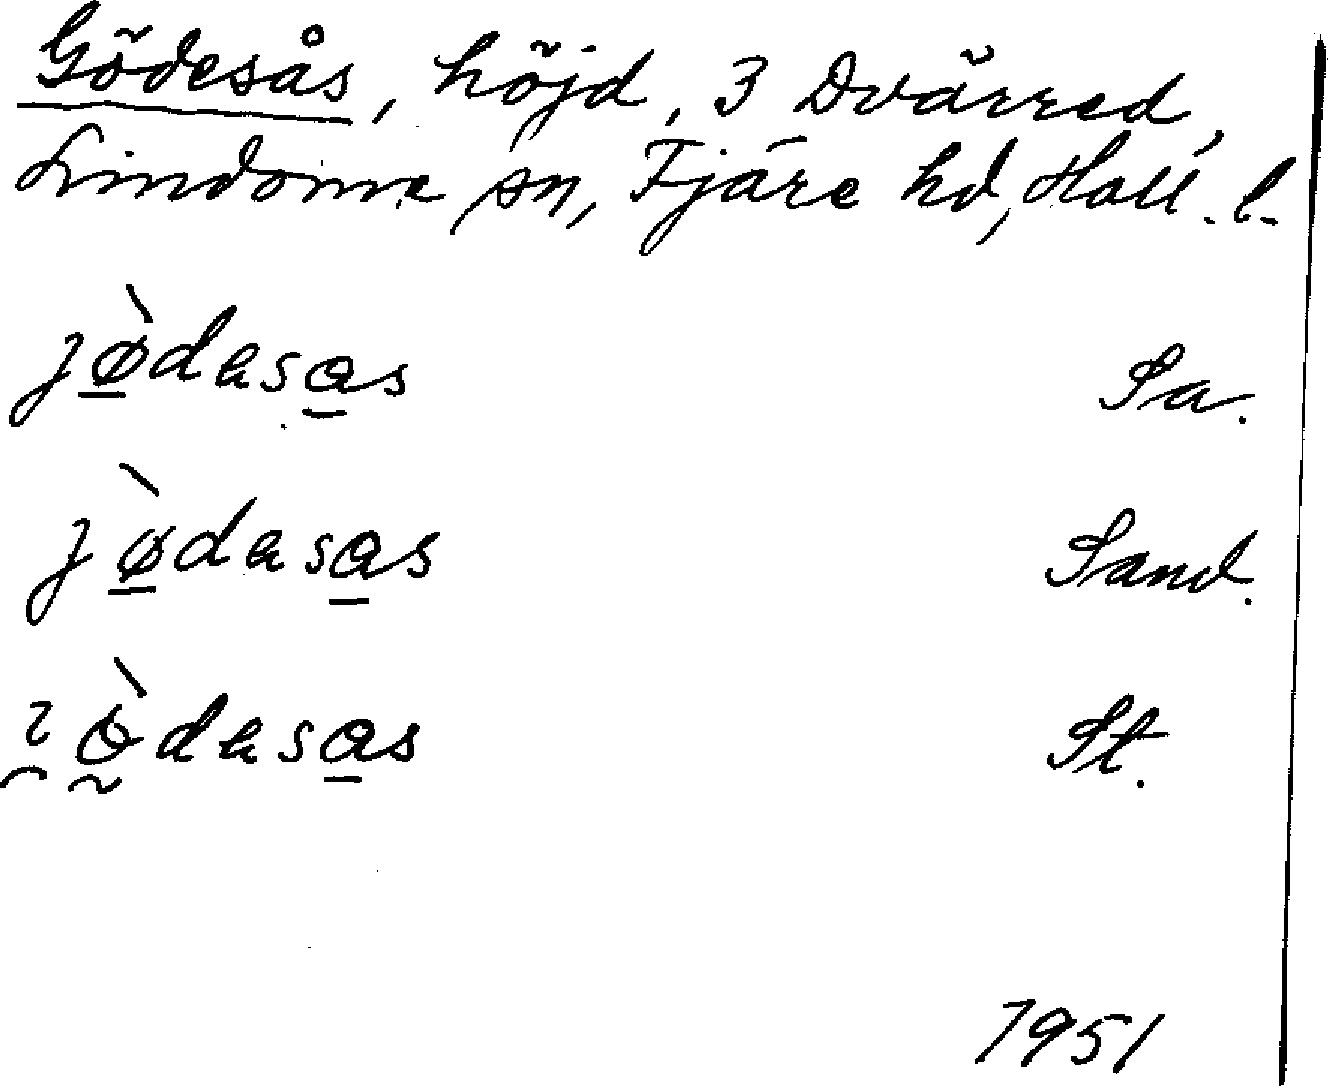 Gödesås, höjd, 3 Dvärred,
Lindome sn, Fjäre hd, Hall. l.
jø̀dasas Sa.
jø̀dasas Sand.
ɿòdasas St.
1951